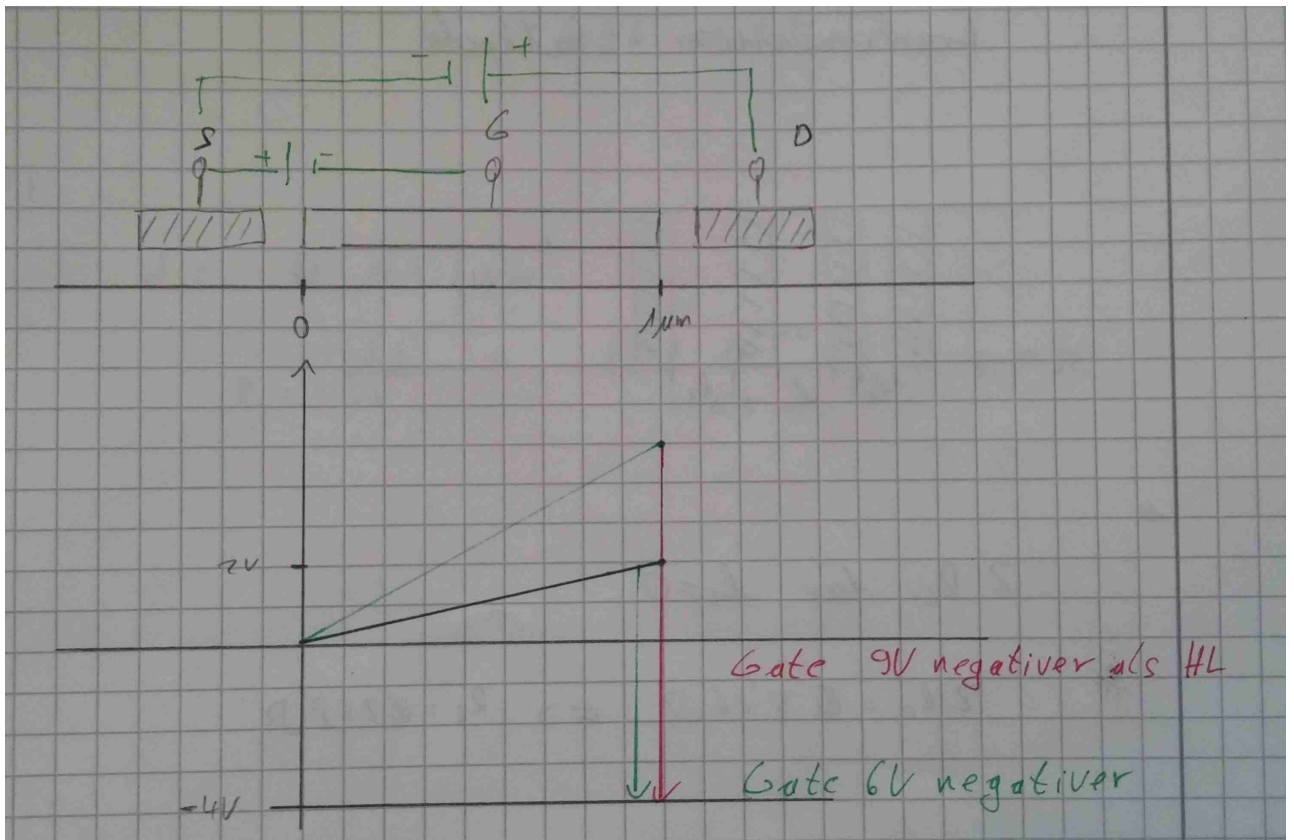 - +
G
S D
+ -
0 1µm
2V
Gate 9V negativer als HL
Gate 6V negativer
-4V